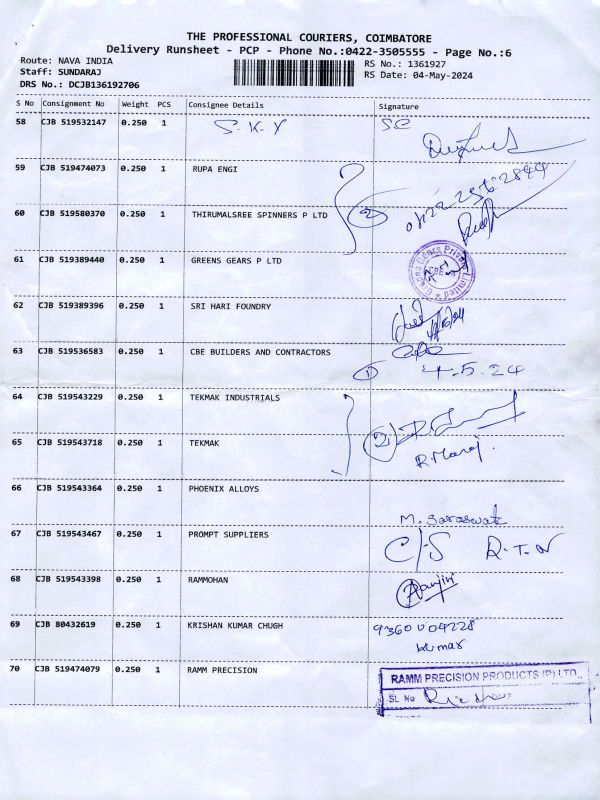 THE PROFESSIONAL COURIERS, COIMBATORE
Delivery Runsheet - PCP - Phone No.:0422-3505555 - Page No.:6
Route: NAVA INDIA
RS No.: 1361927
Staff: SUNDARAJ
RS Date: 04-May-2024
DRS No.: DCJB136192706
S No Consignment No Weight PCS Consignee Details Signature
58 CJB 519532147 0.250 1 S.K.Y
59 CJB 519474073 0.250 1 RUPA ENGI
60 CJB 519580370 0.250 1 THIRUMALSREE SPINNERS P LTD 2
61 CJB 519389440 0.250 1 GREENS GEARS P LTD
62 CJB 519389396 0.250 1 SRI HARI FOUNDRY
63 CJB 519536583 0.250 1 CBE BUILDERS AND CONTRACTORS
1 4.5.24
64 CJB 519543229 0.250 1 TEKMAK INDUSTRIALS
65 CJB 519543718 0.250 1 TEKMAK 2
R.Manoj.
66 CJB 519543364 0.250 1 PHOENIX ALLOYS
M. Saraswati
67 CJB 519543467 0.250 1 PROMPT SUPPLIERS C/S
68 CJB 519543398 0.250 1 RAMMOHAN
69 CJB 80432619 0.250 1 KRISHAN KUMAR CHUGH
kumar
70 CJB 519474079 0.250 1 RAMM PRECISION
RAMM PRECISION PRODUCTS (P) LTD.,
SL No